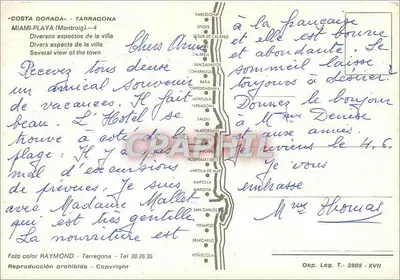 «COSTA DORADA» - TARRAGONA
MIAMI-PLAYA (Montroig).-4
Diversos aspectos de la villa
Divers aspects de la ville
Several view of the town
Chers Amis
Recevez tous deux
un amical souvenir
de vacances. Il fait
beau. L'Hôtel se
trouve à côté de la
plage. Il y a pas
mal d'excursions
de prévues. Je suis
avec Madame Mallet
qui est très gentille
La nourriture est
à la française
et elle est bonne
et abondante. Le
sommeil laisse
toujours à désirer.
Donnez le bonjour
à Mme Denise
et aux amis.
Je reviens le 4.6.
Je vous
embrasse
Mme Thomas
BARCELONA
SITGES
CALAFELL
TARRAGONA
SALOU
CAMBRILS
AMPOLLA
AMPOSTA
VINAROZ
BENICARLO
PEÑISCOLA
CPARHPI
Foto color RAYMOND - Tarragona - Tel 20 26 35
Reproducción prohibida - Copyright
Dep. Leg. T.- 2805 - XVII